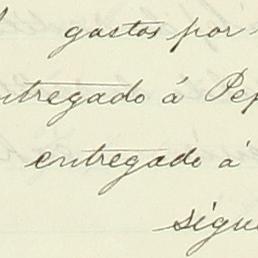 gastos por
entregado á Pep
entregado á
sigue